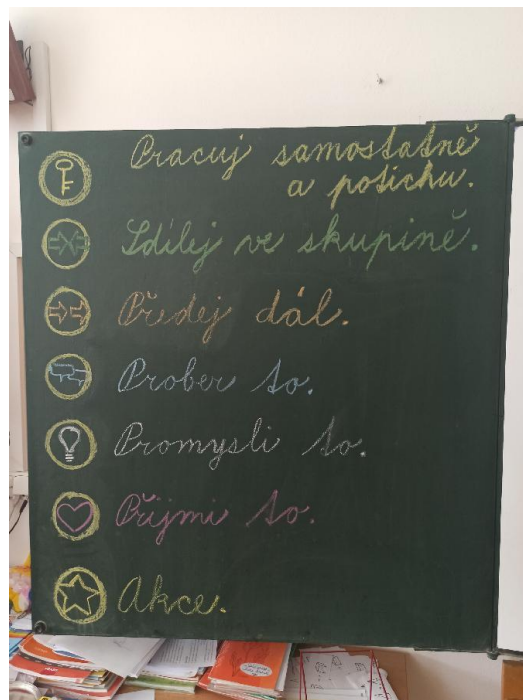 Pracuj samostatně
a potichu.
Sdílej ve skupině.
Předej dál.
Prober to.
Promysli to.
Přijmi to.
Akce.